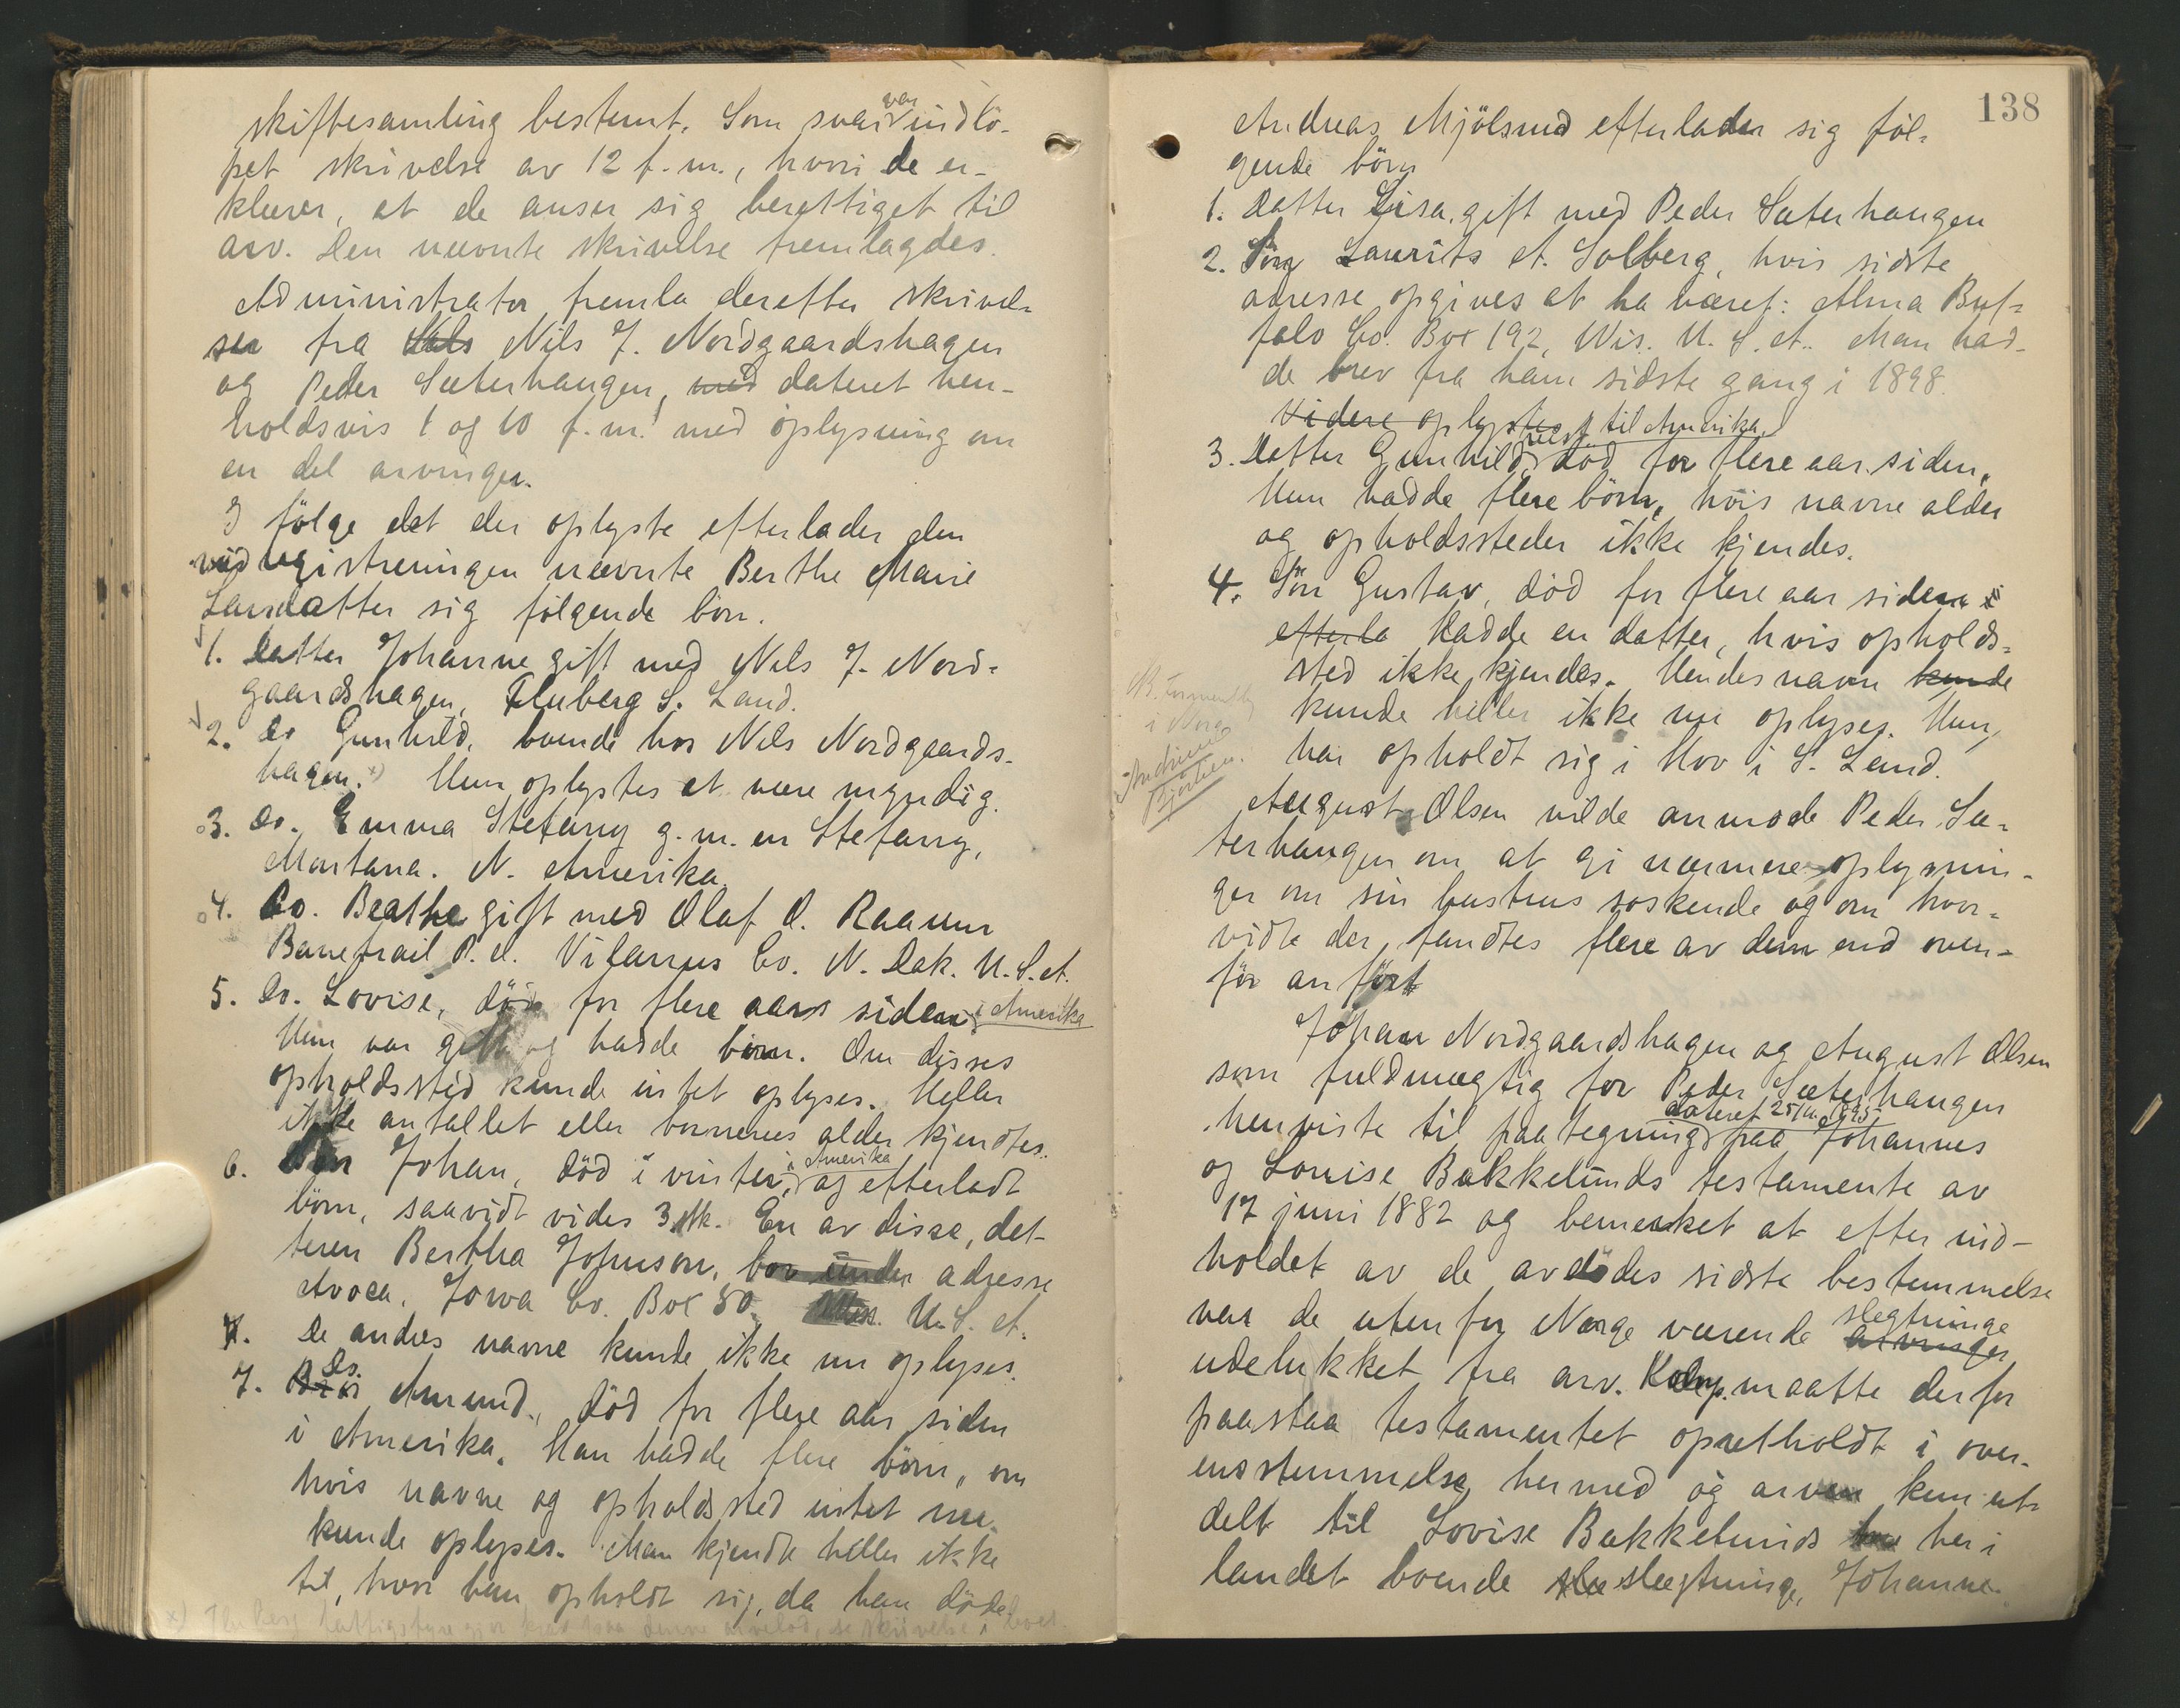 skiftesamling bestemt. Som svar var indlö-
pet skrivelse av 12 f.m., hvori de er-
klærer, at de anser sig berettiget til
arv. Den nævnte skrivelse fremlagdes.
Administrator fremla derefter skrivel-
ser fra Nils J. Nordgaardshagen
og Peder Sæterhaugen, med dateret hen-
holdsvis 1 og 10 f.m. med oplysning om
en del arvinger.
I følge det der oplyste efterlader den
ved registreringen nævnte Berthe Marie
Larsdatter sig følgende børn.
1. Datter Johanne gift med Nils J. Nord-
gaardshagen, Fluberg S. Land.
2. Do Gunhild, boende hos Nils Nordgaards-
hagen. x) Hun oplystes at være myndig.
3. Do. Emma Stefany g.m. en Stefany,
Montana. N. Amerika.
4. Do. Beathe gift med Olaf O. Raaum
Banetrail P.O. Vilams Co. N. Dak. U.S.A.
5. Do. Lovise, död for flere aar siden i Amerika
Hun var gift og hadde börn. Om disses
opholdssted kunde intet oplyses. Heller
ikke antallet eller börnenes alder kjendtes.
6. Sön Johan, död i vinter, i Amerika og efterladt
börn, saavidt vides 3 stk. En av disse, dat-
teren Bertha Johnson, bor under adresse
Avoca, Iowa Co. Box 80. U.S.A.
De andres navne kunde ikke nu oplyses.
7. Do. Amund, död for flere aar siden
i Amerika. Han hadde flere börn, om
hvis navne og opholdssted intet nu
kunde oplyses. Man kjendte heller ikke
til, hvor han opholdt sig, da han döde.
138
Andreas Mjölsund efterlader sig föl-
gende börn
1. Datter Lisa, gift med Peder Sæterhaugen
2. Sön Laurits A. Solberg, hvis sidste
adresse opgives at ha været: Alma Buf-
falo Co. Box 192, Wis. U.S.A. Man had-
de brev fra ham sidste gang i 1898.
Videre oplystes
reist til Amerika,
3. Datter Gunhild, död for flere aar siden.
Hun hadde flere börn, hvis navne alder
og opholdssteder ikke kjendes.
4. Sön Gustav, död for flere aar siden
efterla hadde en datter, hvis opholds-
sted ikke kjendes. Hendes navn kunde
kunde heller ikke nu oplyses. Hun
har opholdt sig i Hov i S. Land.
i Norge
August Olsen vilde anmode Peder Sæ-
terhaugen om at gi nærmere oplysnin-
ger om sin hustrus söskende og om hvor-
vidt der fandtes flere av dem end oven-
för anfört
Johan Nordgaardshagen og August Olsen
som fuldmægtig for Peder Sæterhaugen
henviste til paategning dateret 25/11 1895 paa Johannes
og Lovise Bakkelunds testamente av
17 juni 1882 og bemerket at efter ind-
holdet av de avdödes sidste bestemmelse
var de utenfor Norge værende slegtninge arvinger
udelukket fra arv. Komp. maatte derfor
paastaa testamentet opretholdt i over-
ensstemmelse hermed og arven kun ut-
delt til Lovise Bakkelunds her i
landet boende slegtninge, Johanne